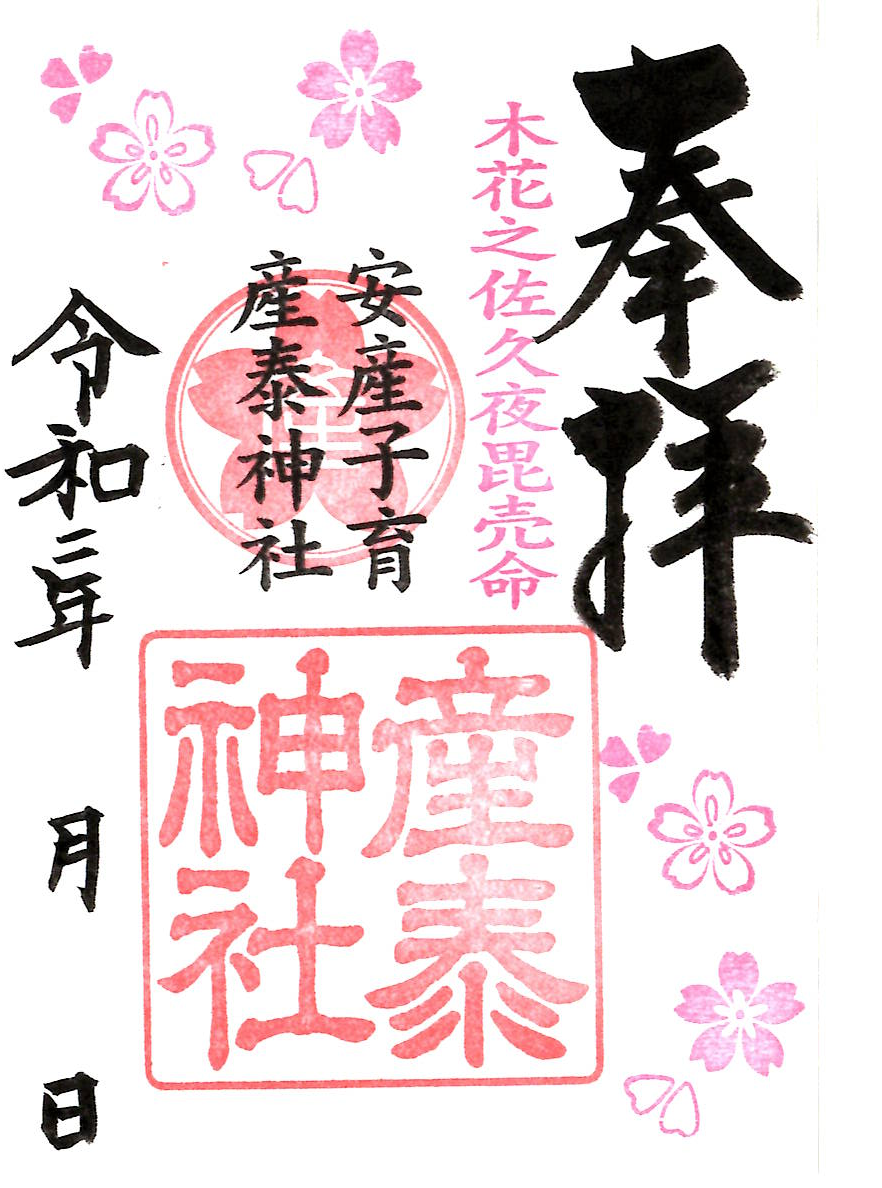 奉拝
木花之佐久夜毘売命
安産子育
産泰神社
産泰
神社
令和二年
月
日